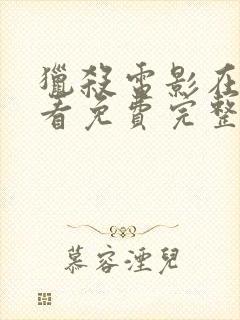 獵殺雷影在
看免費完整
慕容湮兒